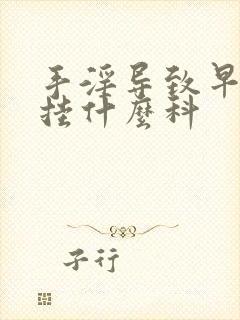 手淫导致早
挂什麼科
子行